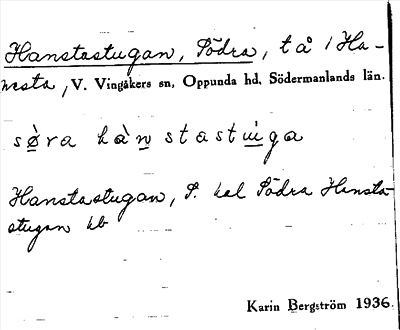 Hanstastugan, Södra, tå i Ha-
nesta, V. Vingåkers sn, Oppunda hd, Södermanlands län.
sø̀ra hàn stastùiga
Hanstastugan, S. kal Södra Hansta-
stugan kb
Karin Bergström 1936.